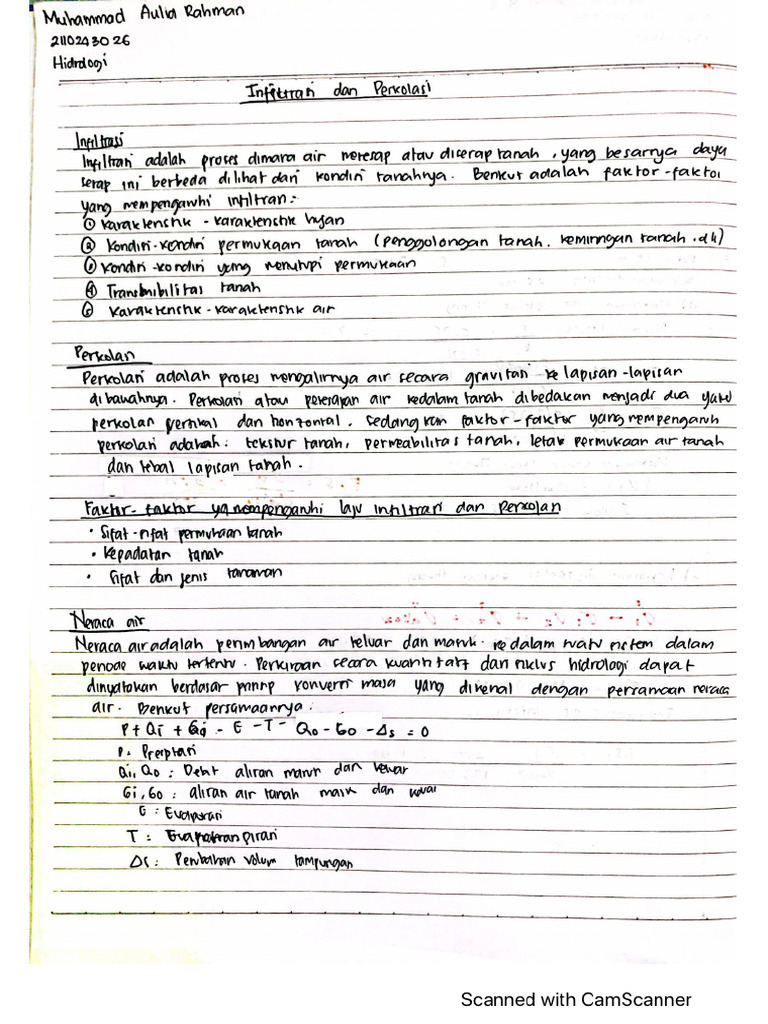 Muhammad Aulia Rahman
2110243026
Hidrologi
Infiltrasi dan Perkolasi
Infiltrasi
Infiltrasi adalah proses dimana air meresap atau diserap tanah, yang besarnya daya
serap ini berbeda dilihat dari kondisi tanahnya. Berikut adalah faktor-faktor
yang mempengaruhi infiltrasi:
① Karakteristik-karakteristik hujan
② Kondisi-kondisi permukaan tanah (penggolongan tanah, kemiringan tanah, dll)
③ Kondisi-kondisi yang menutupi permukaan
④ Transmibilitas tanah
⑤ Karakteristik-karakteristik air
Perkolasi
Perkolasi adalah proses mengalirnya air secara gravitasi ke lapisan-lapisan
dibawahnya. Perkolasi atau peresapan air kedalam tanah dibedakan menjadi dua yaitu
perkolasi vertikal dan horizontal. Sedangkan faktor-faktor yang mempengaruhi
perkolasi adalah: tekstur tanah, permeabilitas tanah, letak permukaan air tanah
dan tebal lapisan tanah.
Faktor-faktor yg mempengaruhi laju infiltrasi dan Perkolasi
• Sifat-sifat permukaan tanah
• Kepadatan tanah
• Sifat dan jenis tanaman
Neraca air
Neraca air adalah perimbangan air keluar dan masuk kedalam suatu sistem dalam
periode waktu tertentu. Perkiraan secara kuantitatif dari siklus hidrologi dapat
dinyatakan berdasar prinsip konversi masa yang dikenal dengan persamaan neraca
air. Berikut persamaannya:
P + Qi + Gi - E - T - Qo - Go - Δs = 0
P: Presiptasi
Qi, Qo: Debit aliran masuk dan keluar
Gi, Go: aliran air tanah masuk dan keluar
E: Evaporasi
T: Evapotranspirasi
Δs: Perubahan volum tampungan
Scanned with CamScanner